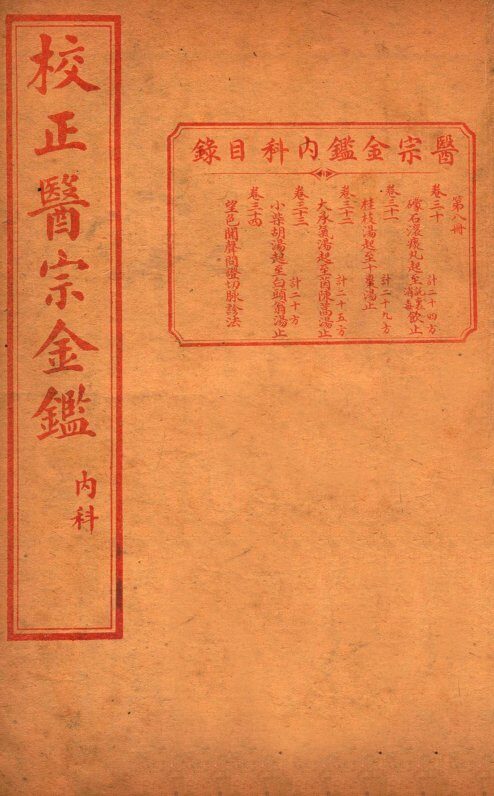 校正醫宗金鑑
内科
醫宗金鑑内科目錄
第八冊
卷三十 計二十四方
礞石滾痰丸起至消毒飲止
卷三十一 計二十九方
桂枝湯起至十棗湯止
卷三十二 計二十五方
大承氣湯起至茵陳蒿湯止
卷三十三 計二十方
小柴胡湯起至白頭翁湯止
卷三十四
望色聞聲問證切脉診法